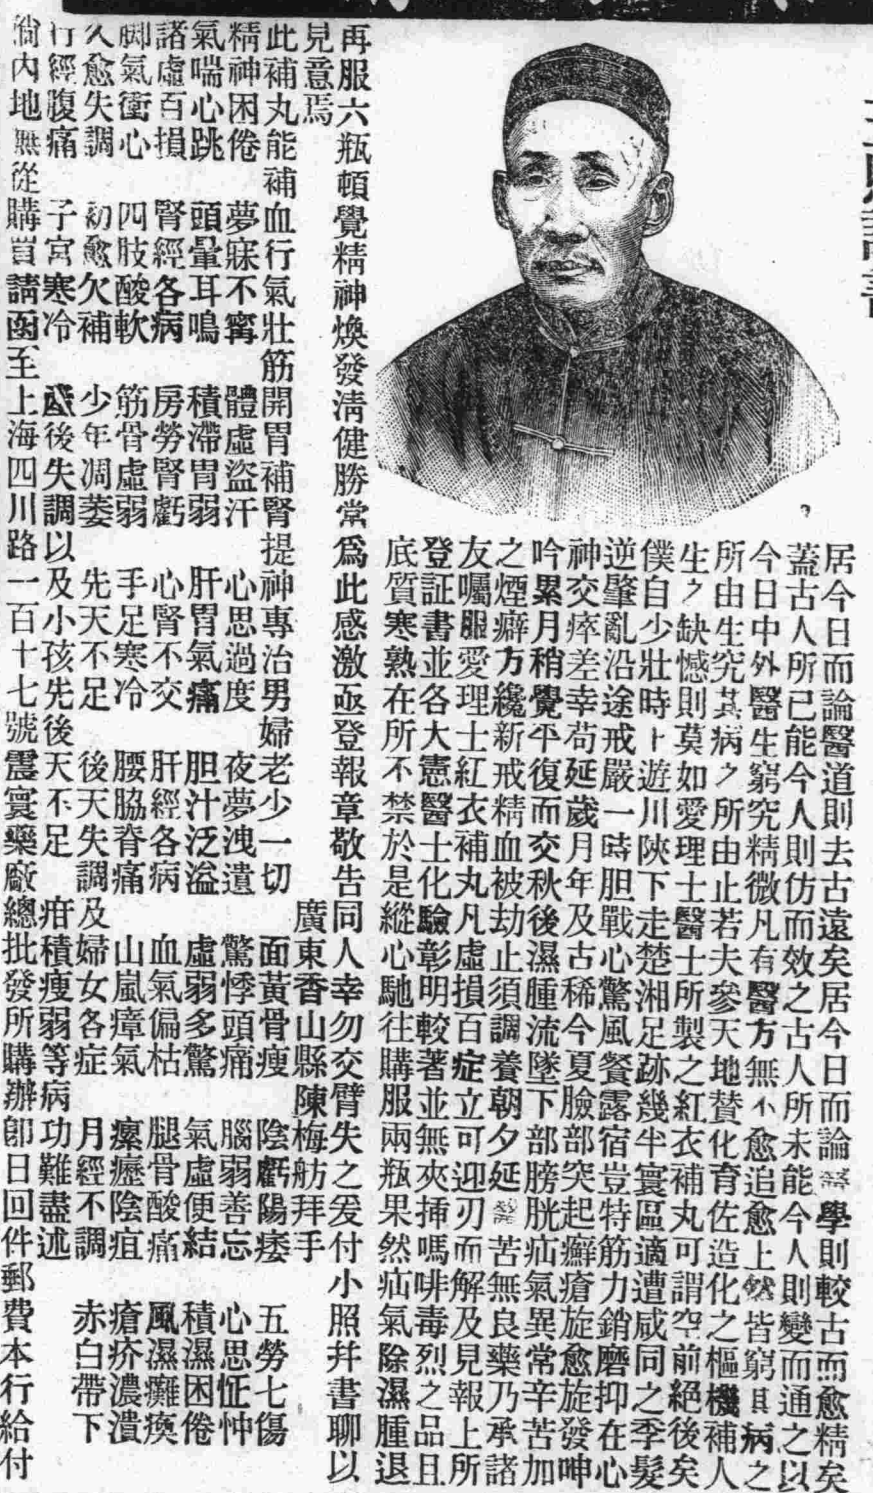 居今日而論醫道則去古遠矣居今日而論醫學則較古而愈精矣
蓋古人所已能今人則仿而效之古人所未能今人則變而通之以
今日中外醫生窮究精微凡有醫方無不愈追愈上然皆窮其病之
所由生究其病之所由止若夫參天地贊化育佐造化之樞機補人
生之缺憾則莫如愛理士醫士所製之紅衣補丸可謂空前絕後矣
僕自少壯時上遊川陝下走楚湘足跡幾半寰區適遭咸同之季髮
逆肇亂沿途戒嚴一時胆戰心驚風餐露宿豈特筋力銷磨抑在心
神交瘁差幸苟延歲月年及古稀今夏臉部突起癬瘡旋愈旋發呻
吟累月稍覺平復而交秋後濕腫流墜下部膀胱疝氣異常辛苦加
之煙癖方纔新戒精血被劫止須調養朝夕延醫苦無良藥乃承諸
友囑服愛理士紅衣補丸凡虛損百症立可迎刃而解及見報上所
登証書並各大憲醫士化驗彰明較著並無夾揷嗎啡毒烈之品且
底質寒熟在所不禁於是縱心馳往購服兩瓶果然疝氣除濕腫退
再服六瓶頓覺精神煥發淸健勝常爲此感激亟登報章敬告同人幸勿交臂失之爰付小照幷書聊以
見意焉
廣東香山縣陳梅舫拜手
此補丸能補血行氣壯筋開胃補腎提神專治男婦老少一切 面黃骨瘦 陰虧陽痿 五勞七傷
精神困倦 夢寐不寗 體虛盜汗 心思過度 夜夢洩遺 驚悸頭痛 腦弱善忘 心思怔忡
氣喘心跳 頭暈耳鳴 積滯胃弱 肝胃氣痛 胆汁泛溢 虛弱多驚 氣虛便結 積濕困倦
諸虛百損 腎經各病 房勞腎虧 心腎不交 肝經各病 血氣偏枯 腿骨酸痛 風濕癱瘓
脚氣衝心 四肢酸軟 筋骨虛弱 手足寒冷 腰脇脊痛 山嵐瘴氣 瘰癧陰疽 瘡疥濃潰
久愈失調 初愈欠補 少年凋萎 先天不足 後天失調及婦女各症 月經不調 赤白帶下
行經腹痛 子宮寒冷 產後失調以及小孩先後天不足 疳積瘦弱等病功難盡述
倘內地無從購買請函至上海四川路一百十七號震寰藥廠總批發所購辦卽日回件郵費本行給付